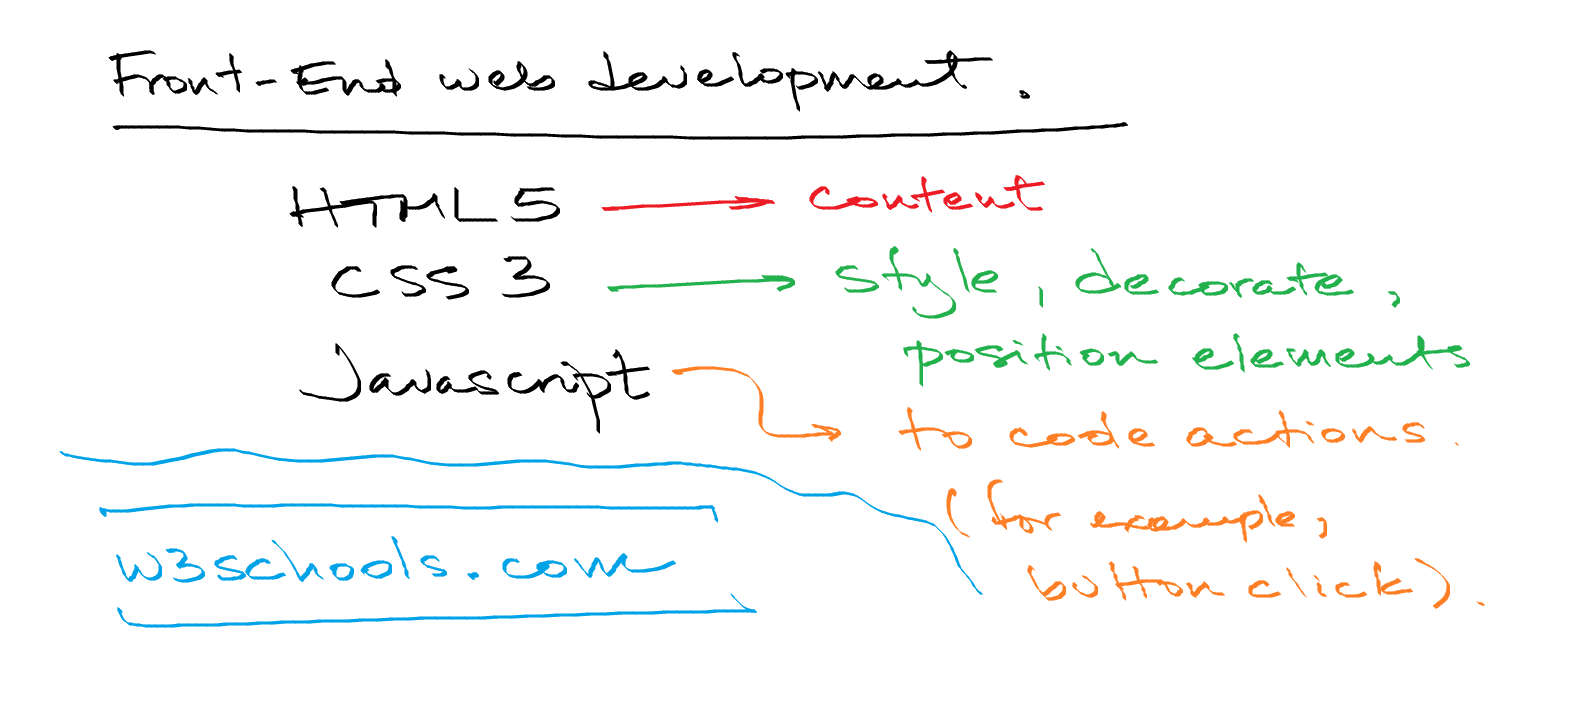 Front-End web development.
HTML5 → content
CSS 3 → style, decorate,
position elements
Javascript → to code actions.
(for example,
button click).
w3schools.com